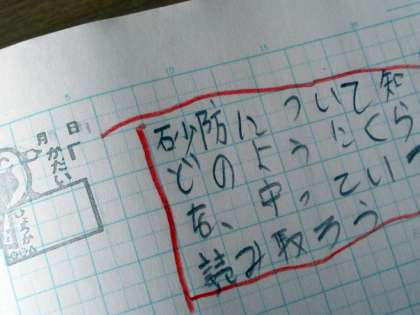 砂防について知
どのようにくら
を、守っていっ
読み取ろう
月 日
かだい
5
10
15